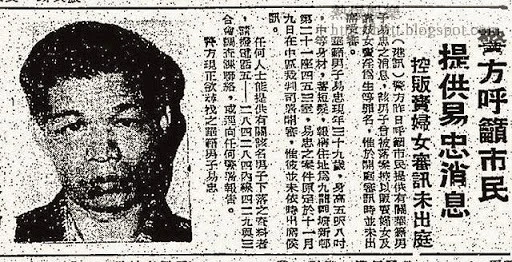 警方呼籲市民
提供易忠消息
控販賣婦女審訊未出庭
(港訊)警方昨日呼籲市民提供有關華籍男
子易忠之消息,該男子曾被落案控以販賣婦女及
靠妓女賣淫為生等罪名,惟於開庭審訊時並未出
席應審。
華籍男子易忠現年三十九歲,身高五呎八吋
中等身材,蓄短髮,報稱住址為九龍
第二十一座四五三室。易忠之案件原定於十一月
九日在中區裁判司署開審,惟彼並未依時出席候
訊。
任何人士能提供有關該名男子下落之資料者
請撥電話五—二八四二八四內線四二九與三
合會調查課聯絡,或逕向任何警署報告。
警方現正欲尋找之華籍男子易忠